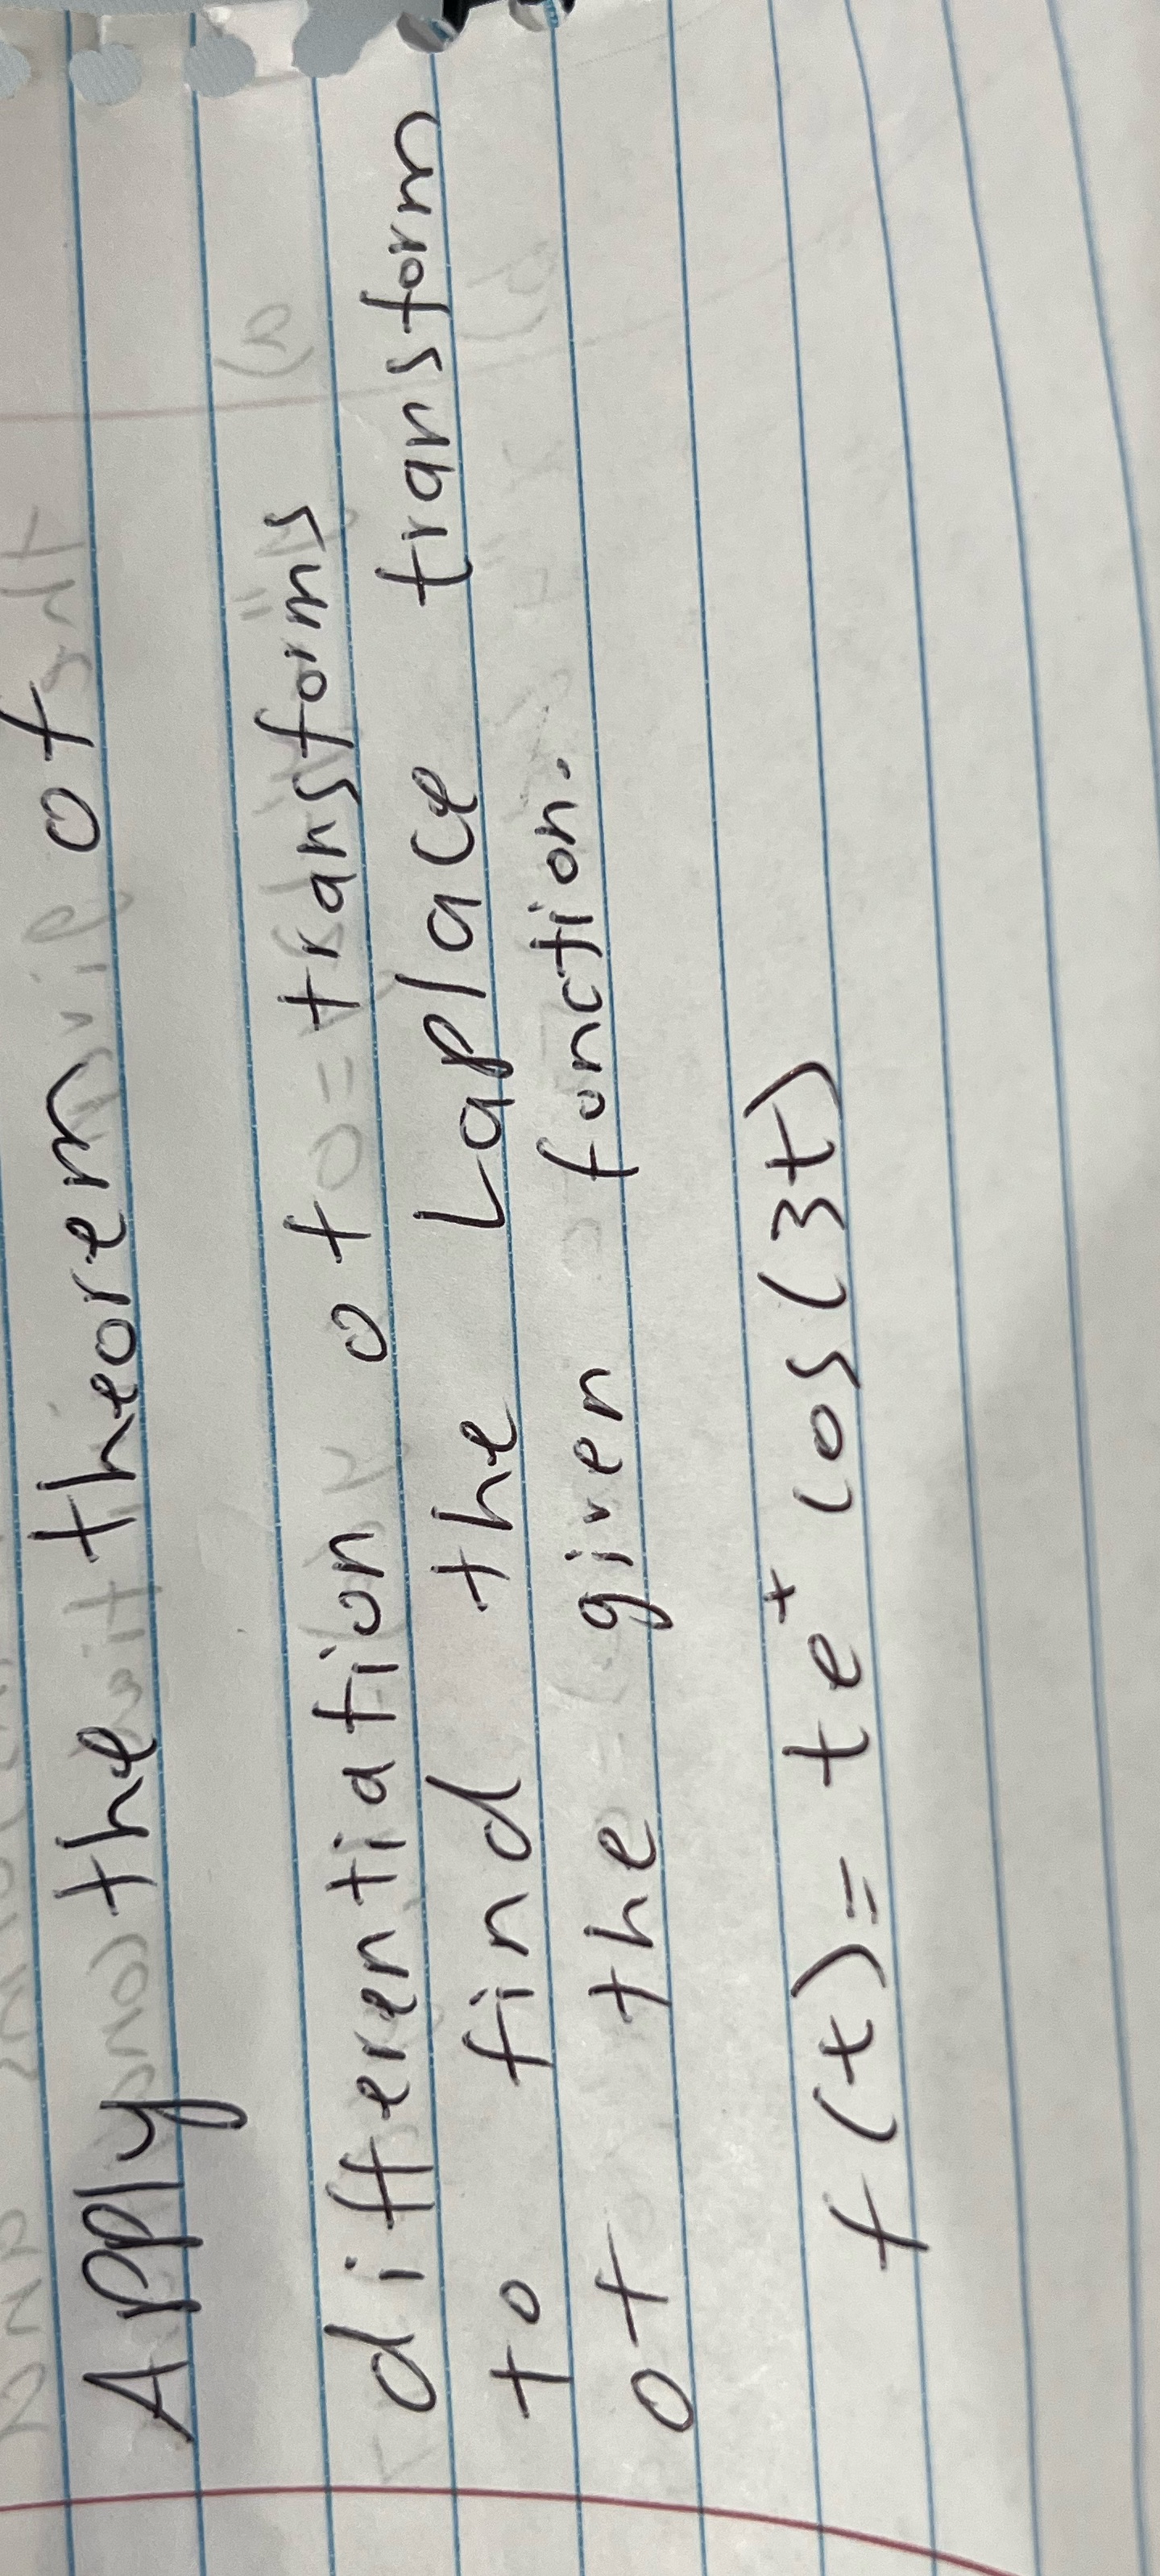 Apply the theorem of
differentiation of transforms
to find the Laplace transform
of the given function.
f(t) = t e^t cos(3t)